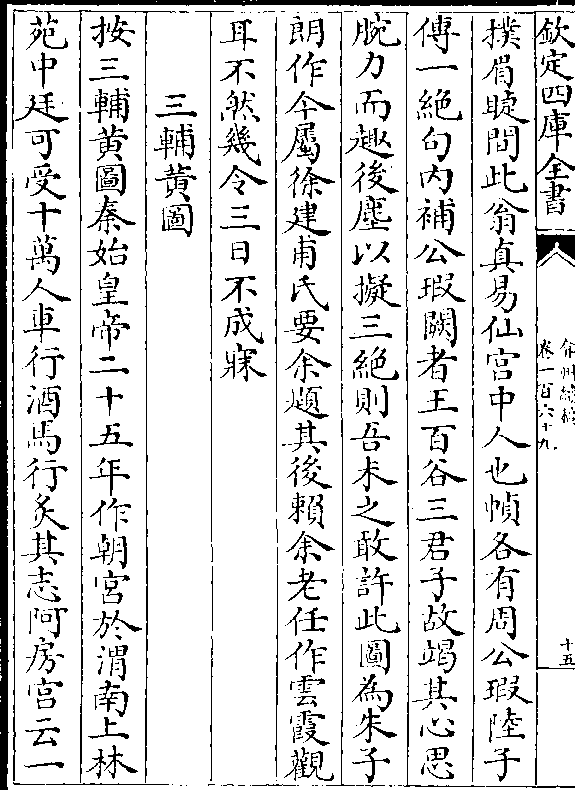 欽定四庫全書
弇州續稿
卷一百六十九
十五
撲眉睫間此翁真易仙宮中人也幀各有周公瑕陸子
傳一絶句內補公瑕闕者王百谷三君子故竭其心思
腕力而趣後塵以擬三絶則吾未之敢許此圖為朱子
朗作今屬徐建甫氏要余題其後賴余老任作雲霞觀
耳不然幾令三日不成寐
三輔黄圖
按三輔黄圖秦始皇帝二十五年作朝宮於渭南上林
苑中廷可受十萬人車行酒馬行炙其志阿房宮云一